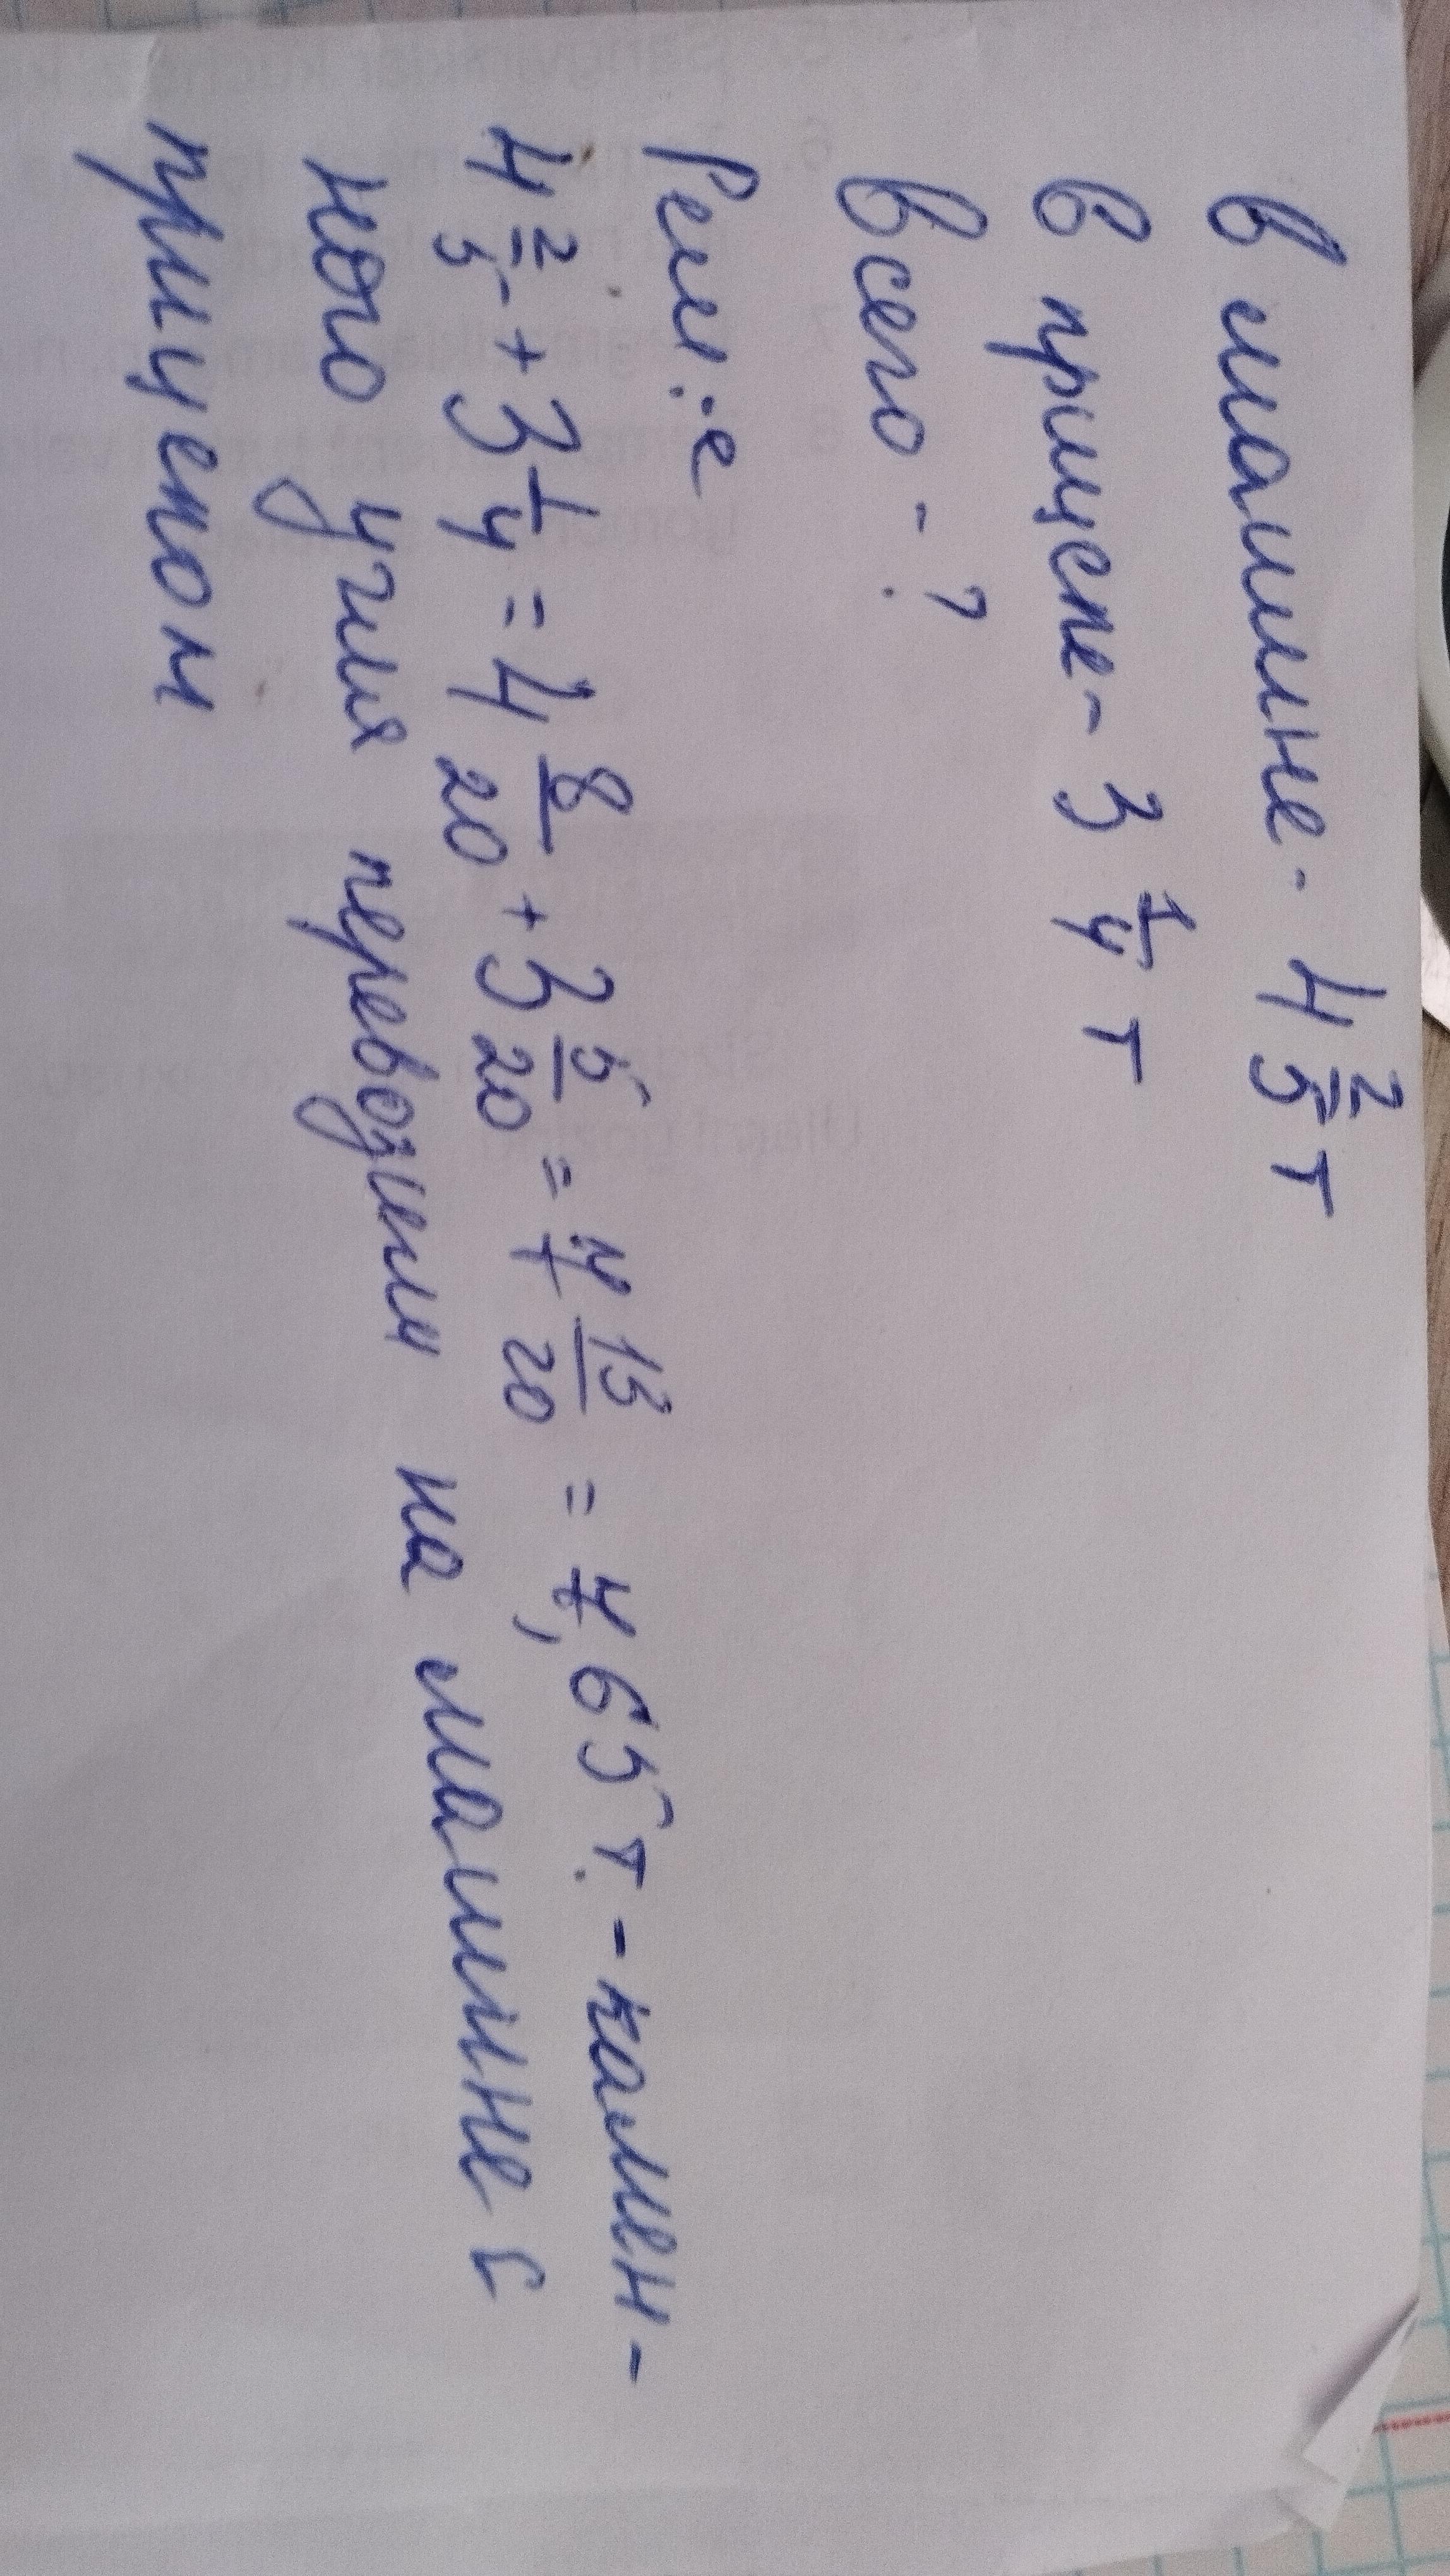 В машине - 4 2/5 т
В прицепе - 3 1/4 т
Всего - ?
Реш.:е
4 2/5 + 3 1/4 = 4 8/20 + 3 5/20 = 7 13/20 = 7,65 т. - камен-
ного угля перевозим на машине с
прицепом